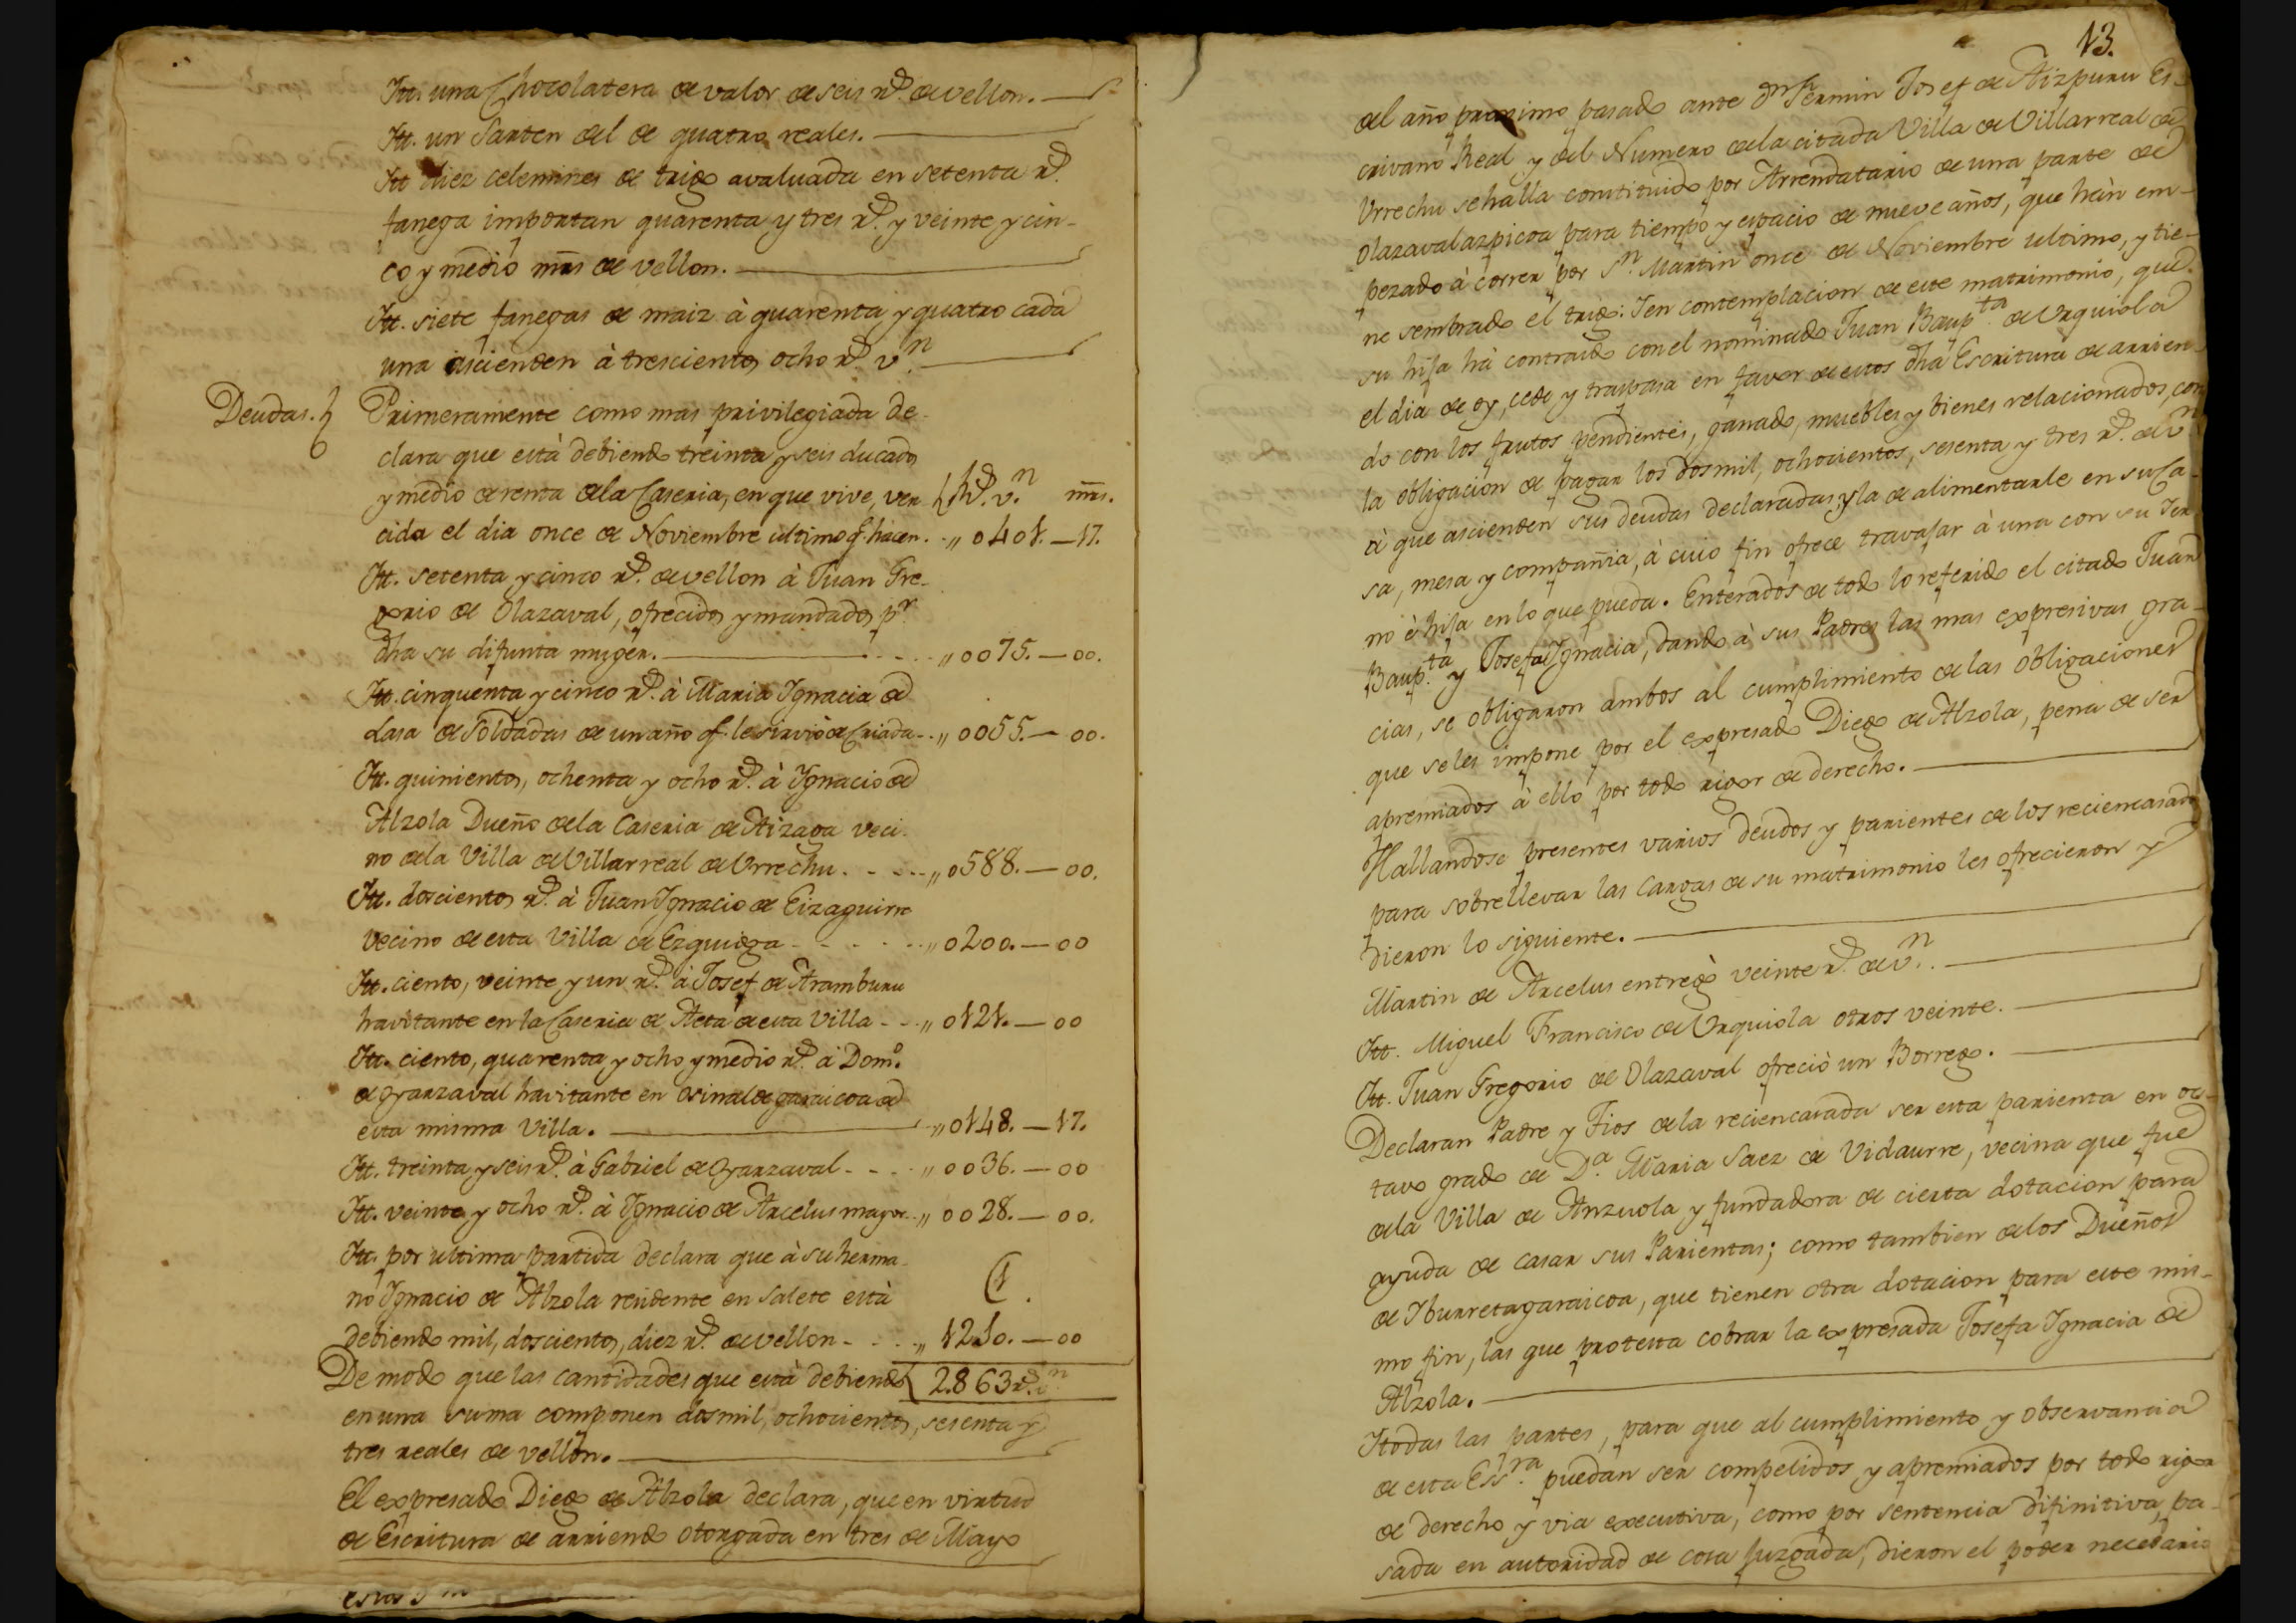 Itt. una Chocolatera de valor de seis r.s de vellon.
Itt. un Sarten del de quatro reales.
Itt diez celemines de trigo avaluada en setenta r.s
fanega importan quarenta y tres r.s y veinte y cin-
co y medio mrs de vellon.
Itt. siete fanegas de maiz à quarenta y quatro cada
una ascienden à trescientos ocho r.s v.n
Deudas. Primeramente como mas privilegiada de-
clara que està debiendo treinta y seis ducados
y medio de renta de la Caseria, en que vive, ven- R.s v.n mrs.
cida el dia once de Noviembre ultimo q.e hacen . " 0401. — 17.
Itt. setenta y cinco r.s de vellon à Juan Gre-
gorio de Olazaval, ofrecidos y mandados p.r
dha su difunta muger. " 0075. — 00.
Itt. cinquenta y cinco r.s à Maria Ignacia de
Lasa de Soldadas de un año q.e le sirviò de Criada - " 0055. — 00.
Itt. quinientos, ochenta y ocho r.s à Ignacio de
Alzola Dueño de la Caseria de Aizaga veci-
no de la Villa de Villarreal de Urrechu . - - - " 0588. — 00.
Itt. doscientos r.s à Juan Ignacio de Eizaguirre
vecino de esta Villa de Ezquioga - - - - " 0200. — 00
Itt. ciento, veinte y un r.s à Josef de Aramburu
havitante en la Caseria de Aeta de esta Villa - - " 0121. — 00
Itt. ciento, quarenta y ocho y medio r.s à Dom.o
de Oyarzaval havitante en Osinalde garaicoa de
esta misma Villa. " 0148. — 17.
Itt. treinta y seis r.s à Gabriel de Oyarzaval - - - " 0036. — 00
Itt. veinte y ocho r.s à Ignacio de Arcelus mayor. . " 0028. — 00.
Itt. por ultima partida declara que à su herma-
no Ignacio de Alzola residente en Salete està (1.
debiendo mil, doscientos, diez r.s de vellon - - . " 1210. — 00
De modo que las cantidades que està debiendo 2.863 r.s v.n
en una suma componen dosmil, ochocientos, sesenta y
tres reales de vellon.
El expresado Diego de Alzola declara, que en virtud
de Escritura de arriendo otorgada en tres de Mayo
13.
del año proximo pasado ante D.n Fermin Josef de Aizpuru Es-
crivano Real y del Numero de la citada Villa de Villarreal de
Urrechu se halla constituido por Arrendatario de una parte de
Olazavalazpicoa para tiempo y espacio de nueve años, que hàn em-
pezado à correr por S.n Martin once de Noviembre ultimo, y tie-
ne sembrado el trigo: I en contemplacion de este matrimonio, que
su hija hà contraido con el nominado Juan Baup.ta de Urquiola
el dia de oy, cede y traspasa en favor de estos dha Escritura de arrien-
do con los frutos pendientes, ganado, muebles y bienes relacionados, con
la obligacion de pagar los dosmil, ochocientos, sesenta y tres r.s de v.n
à que ascienden sus deudas declaradas, y la de alimentarle en su Ca-
sa, mesa y compañia, à cuio fin ofrece travajar à una con su Ier-
no è hija en lo que pueda. Enterados de todo lo referido el citado Juan
Baup.ta y Josefa Ignacia, dando à sus Padres las mas expresivas gra-
cias, se obligaron ambos al cumplimiento de las obligaciones
que se les impone por el expresado Diego de Alzola, pena de ser
apremiados à ello por todo rigor de derecho.
Hallandose presentes varios deudos y parientes de los reciencasados
para sobrellevar las Cargas de su matrimonio les ofrecieron y
dieron lo siguiente.
Martin de Arcelus entregò veinte r.s de v.n
Itt. Miguel Francisco de Urquiola otros veinte.
Itt. Juan Gregorio de Olazaval ofreciò un Borrego.
Declaran Padre y Tios de la reciencasada ser esta parienta en oc-
tavo grado de D.a Maria Saez de Vidaurre, vecina que fue
de la Villa de Anzuola y fundadora de cierta dotacion para
ayuda de casar sus Parientas; como tambien de los Dueños
de Iburretagaraicoa, que tienen otra dotacion para este mis-
mo fin, las que protesta cobrar la expresada Josefa Ignacia de
Alzola.
I todas las partes, para que al cumplimiento y observancia
de esta Ess.ra puedan ser compelidos y apremiados por todo rigor
de derecho y via executiva, como por sentencia difinitiva, pa-
sada en autoridad de cosa juzgada, dieron el poder necesario